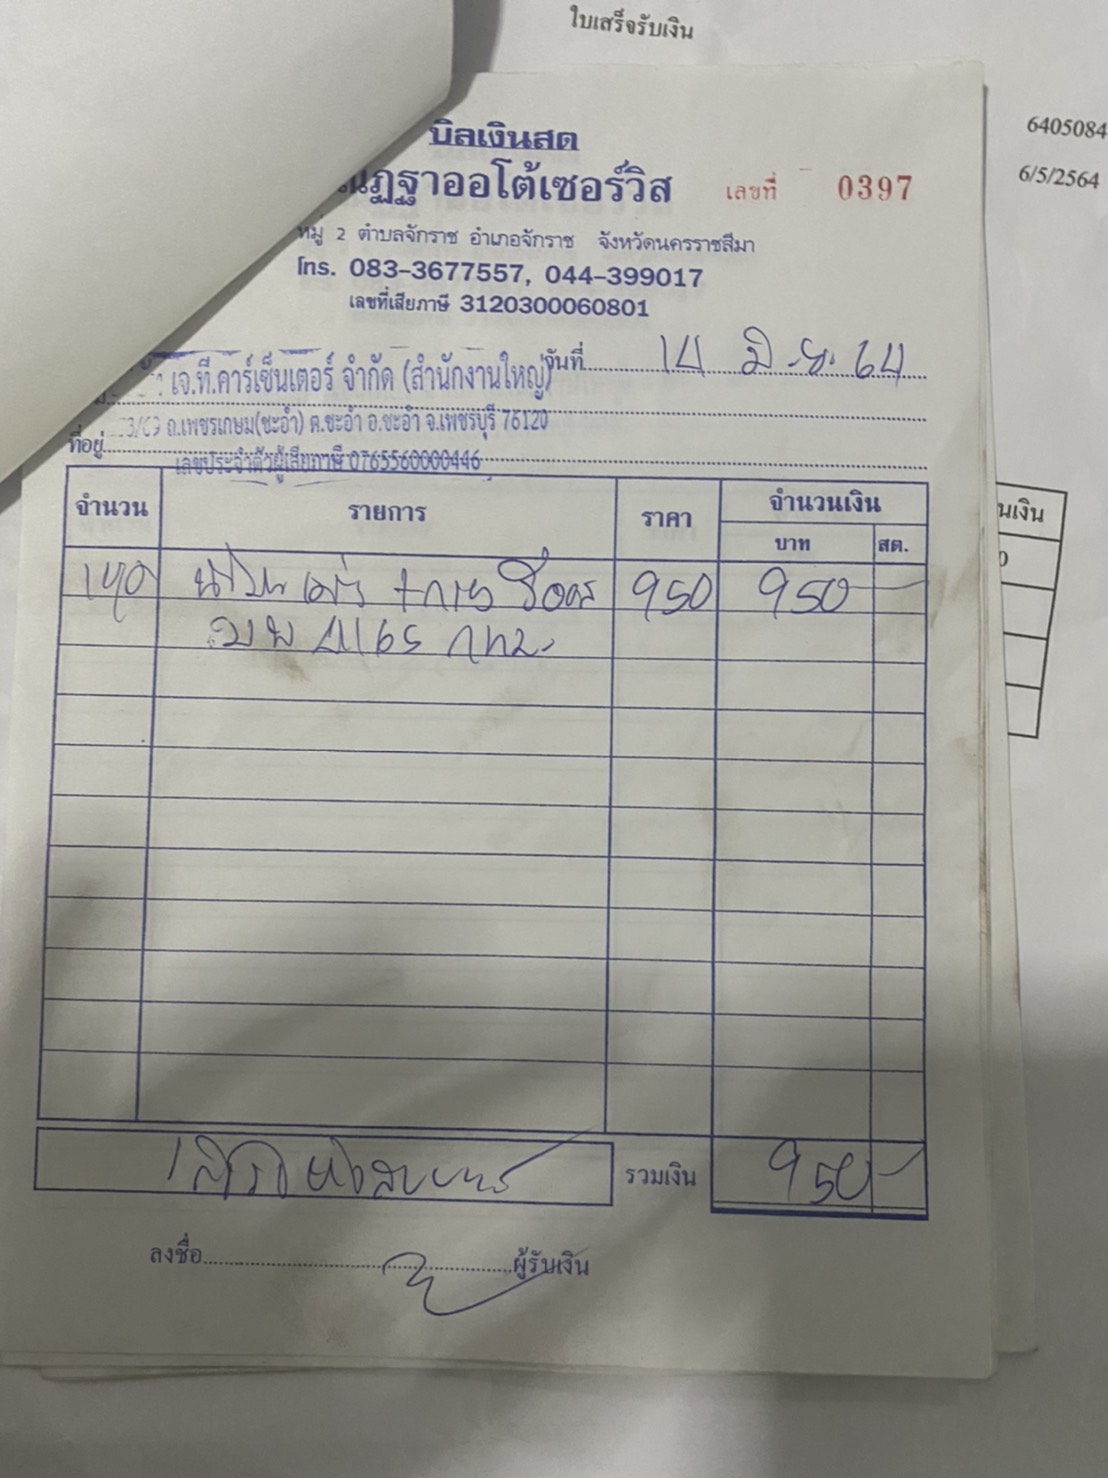 ใบเสร็จรับเงิน
6405084
6/5/2564
บิลเงินสด
ณัฏฐาออโต้เซอร์วิส เลขที่ 0397
หมู่ 2 ตำบลจักราช อำเภอจักราช จังหวัดนครราชสีมา
โทร. 083-3677557, 044-399017
เลขที่เสียภาษี 3120300060801
เจ.ที.คาร์เซ็นเตอร์ จำกัด (สำนักงานใหญ่) วันที่ 14 มิ.ย. 64
3/69 ถ.เพชรเกษม(ชะอำ) ต.ชะอำ อ.ชะอำ จ.เพชรบุรี 76120
ที่อยู่
เลขประจำตัวผู้เสียภาษี 0765560000446
จำนวน รายการ ราคา จำนวนเงิน
บาท สต.
950 950 -
กทม.
รวมเงิน 950 -
ลงชื่อ ผู้รับเงิน
นเงิน
0